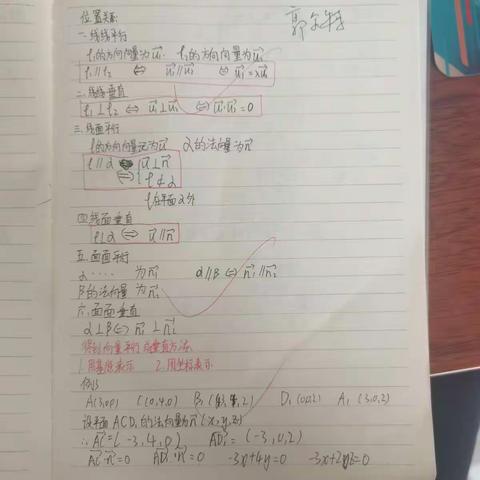 位置关系
一.线线平行
l₁的方向向量为u₁. l₂的方向向量为u₂
l₁∥l₂ ⇔ u₁∥u₂ ⇔ u₁=λu₂
二.线线垂直
l₁⊥l₂ ⇔ u₁⊥u₂ ⇔ u₁·u₂=0
三.线面平行
l的方向向量记为u α的法向量为n
l∥α ⇔ { u⊥n
l⊄α
l在平面α外
四线面垂直
l⊥α ⇔ u∥n
五.面面平行
α ···· 为n₁ α∥β ⇔ n₁∥n₂
β的法向量 为n₂
六.面面垂直
α⊥β ⇔ n₁⊥n₂
得到向量平行与垂直方法
1.用基底表示 2.用坐标表示
A(3,0,0) C(0,4,0) B₁( 2) D₁(0,0,2) A₁(3,0,2)
设平面ACD₁的法向量为n(x,y,z)
∴AC=(-3,4,0) AD₁=(-3,0,2)
AC·n=0 AD₁·n=0 -3x+4y=0 -3x+2z=0